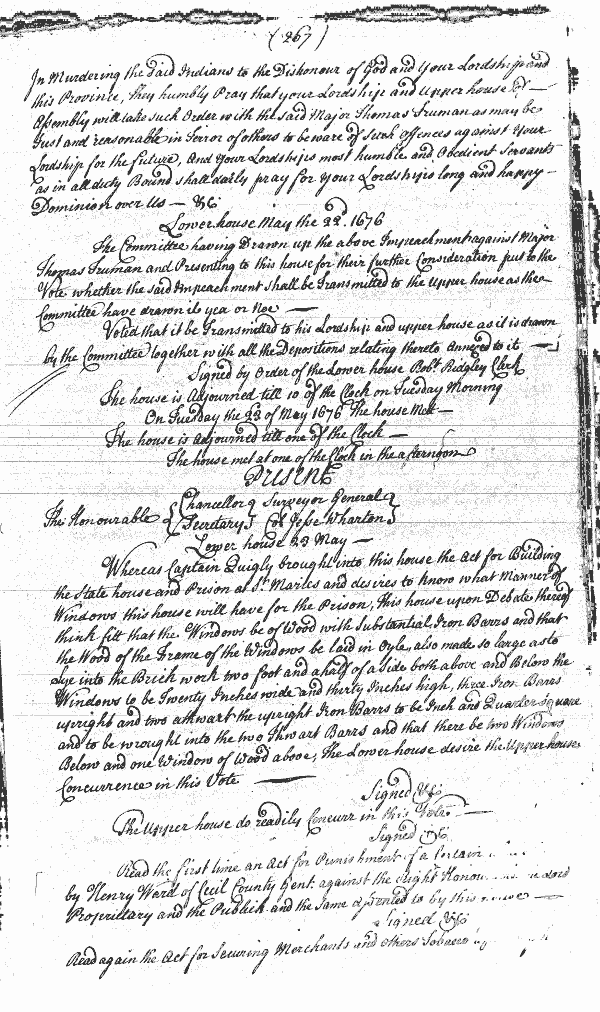 (267)
In Murdering the said Indians to the Dishonour of God and Your Lordship and
this Province, they humbly Pray that your Lordship and Upper house of
Assembly will take such Order with the said Major Thomas Truman as may be
Just and reasonable in Terror of others to beware of Such offences against Your
Lordship for the future, And Your Lordships most humble and Obedient Servants
as in all duty Bound shall daily pray for Your Lordships long and happy
Dominion over Us — &c
Lower house May the 22d. 1676
The Committee having Drawn up the above Impeachment against Major
Thomas Truman and Presenting to this house for their further Consideration put to the
Vote whether the said Impeachment shall be Transmitted to the Upper house as the
Committee have drawn it yea or Noe —
Voted that it be Transmitted to his Lordship and upper house as it is drawn
by the Committee together with all the Depositions relating thereto Annexed to it —
Signed by Order of the Lower house Robt. Ridgley Clark
The house is Adjourned till 10 of the Clock on Tuesday Morning
On Tuesday the 23 of May 1676 The house Met —
The house is adjourned till one of the Clock —
The house met at one of the Clock in the afternoon
Present
The Honourable { Chancellor } Surveyor General }
{ Secretary } Col Jesse Wharton }
Lower house 23 May —
Whereas Captain Quigly brought into this house the Act for Building
the State house and Prison at St. Maries and desires to know what Manner of
Windows this house will have for the Prison, This house upon Debate thereof
think fitt that the Windows be of Wood with Substantial Iron Barrs and that
the Wood of the Frame of the Windows be laid in Oyle, also made so large as to
Lye into the Brick work two foot and a half of a Side both above and Below the
Windows to be Twenty Inches wide and thirty Inches high, three Iron Barrs
upright and two athwart the upright Iron Barrs to be Inch and Quarter Square
and to be wrought into the two Thwart Barrs and that there be two Windows
Below and one Window of Wood above, The Lower house desire the Upper house
Concurrence in this Vote —
Signed &c
The Upper house do readily Concurr in this Vote —
Signed &c
Read the first time an Act for Punishment of a Certain
by Henry Ward of Cecil County Gent. against the Right Honou Lord
Proprietary and the Publick and the Same assented to by this house —
Signed &c
Read again the Act for Securing Merchants and others Tobacco